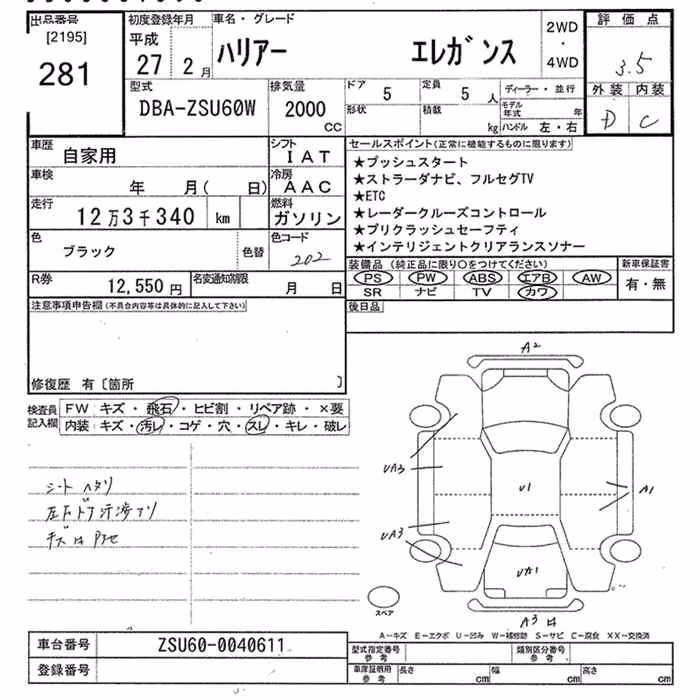 出品番号 初度登録年月 車名・グレード 2WD・4WD 評価点
[2195] 281 平成 27 2月 ハリアー エレガンス 3.5
型式 排気量 ドア 5 定員 5人 ディーラー・並行 外装 内装
DBA-ZSU60W 2000 CC 形状 積載 kg モデル年式 年 ハンドル 左・右 D C
車歴 自家用 シフト IAT セールスポイント(正常に機能するものに限ります)
★プッシュスタート
車検 年 月( 日) 冷房 AAC ★ストラーダナビ、フルセグTV
★ETC
走行 12万3千340 km 燃料 ガソリン ★レーダークルーズコントロール
★プリクラッシュセーフティ
色 ブラック 色替 色コード 202 ★インテリジェントクリアランスソナー
装備品(純正品に限り○をつけてください) 新車保証書
R券 12,550円 名変通知期限 月 日 PS PW ABS エアB AW 有・無
SR ナビ TV カワ
注意事項申告欄(不具合内容等は具体的に記入して下さい) 後日品
修復歴 有〔箇所 〕
検査員記入欄 FW キズ・飛石・ヒビ割・リペア跡・×要
内装 キズ・汚レ・コゲ・穴・スレ・キレ・破レ
シート ヘタリ
左右ドア
A2
UA3
U1
A1
UA3
UA1
スペア
A3
A-キズ E-エクボ U-凹み W-補修跡 S-サビ C-腐食 XX-交換済
車台番号 ZSU60-0040611 型式指定番号 参考 類別区分番号 参考
登録番号 車庫証明用 参考 長さ cm 幅 cm 高さ cm